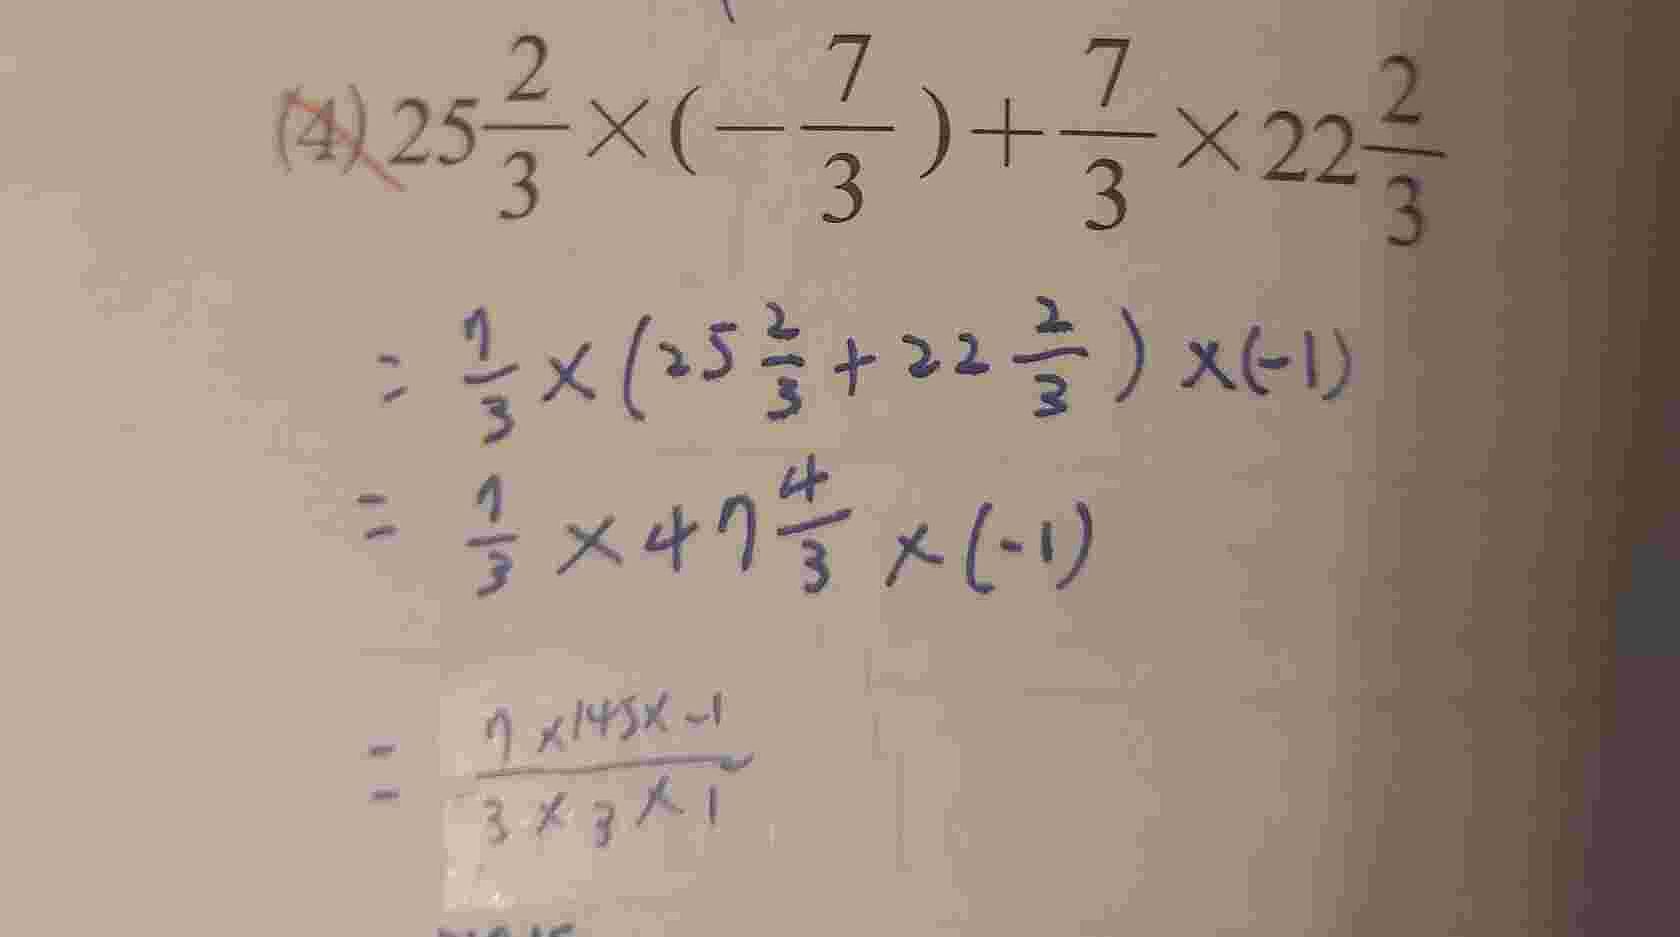 (4) 25 2/3 × (− 7/3 ) + 7/3 × 22 2/3
= 7/3 × (25 2/3 + 22 2/3 ) × (-1)
= 7/3 × 47 4/3 × (-1)
= 7 × 145 × -1 / 3 × 3 × 1